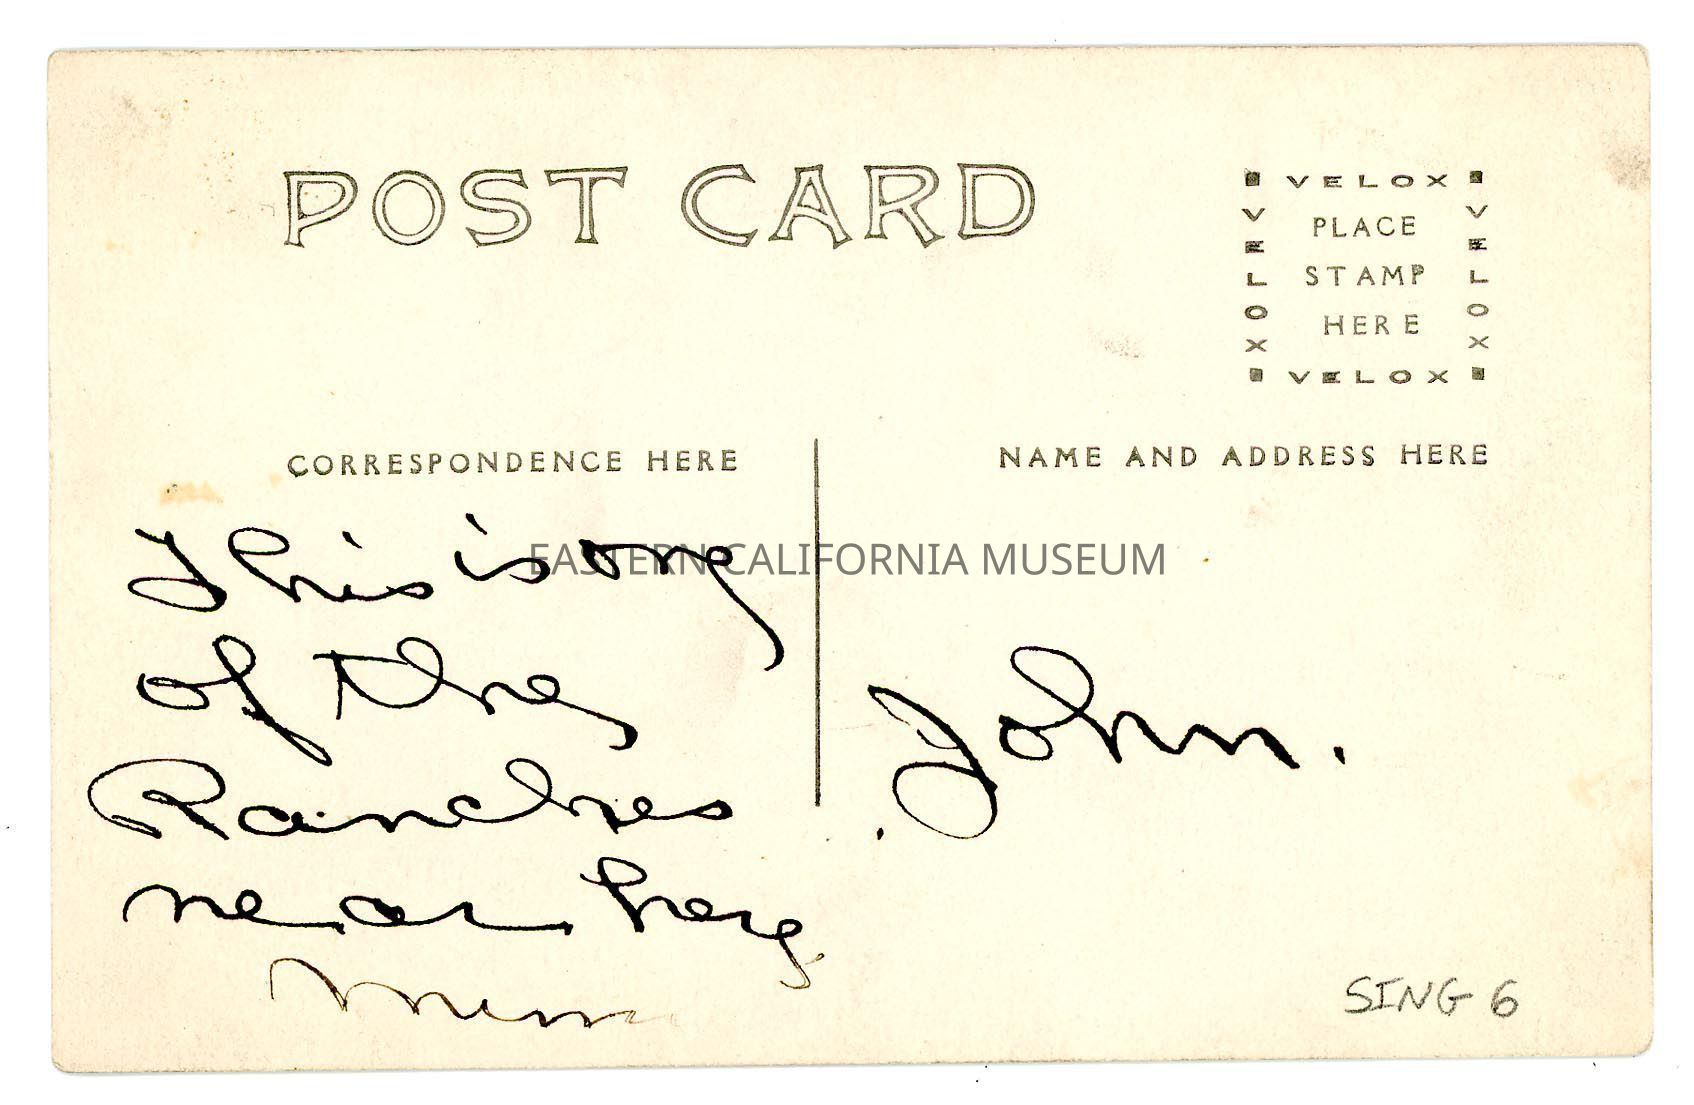 POST CARD
VELOX
VELOX
PLACE
STAMP
HERE
VELOX
VELOX
CORRESPONDENCE HERE
NAME AND ADDRESS HERE
This is one
of the
Ranches
near here.
John.
EASTERN CALIFORNIA MUSEUM
SING 6